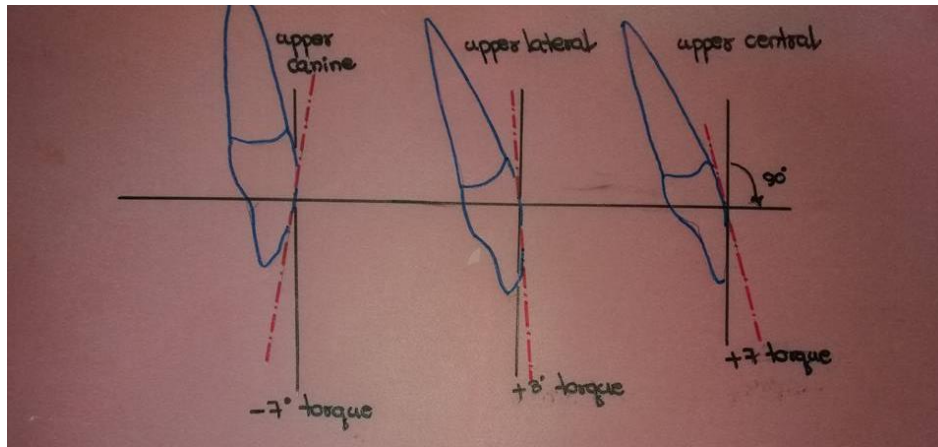 upper
canine
upper lateral
upper central
90°
-7° torque
+3° torque
+7 torque